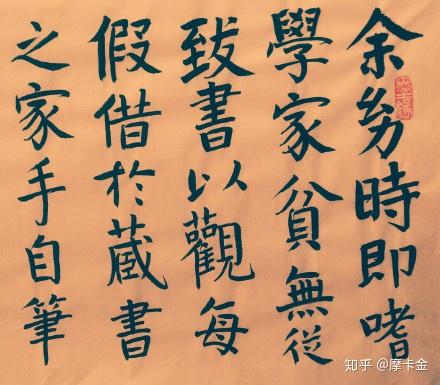 余幼時即嗜
學家貧無從
致書以觀每
假借於藏書
之家手自筆
知乎 @摩卡金